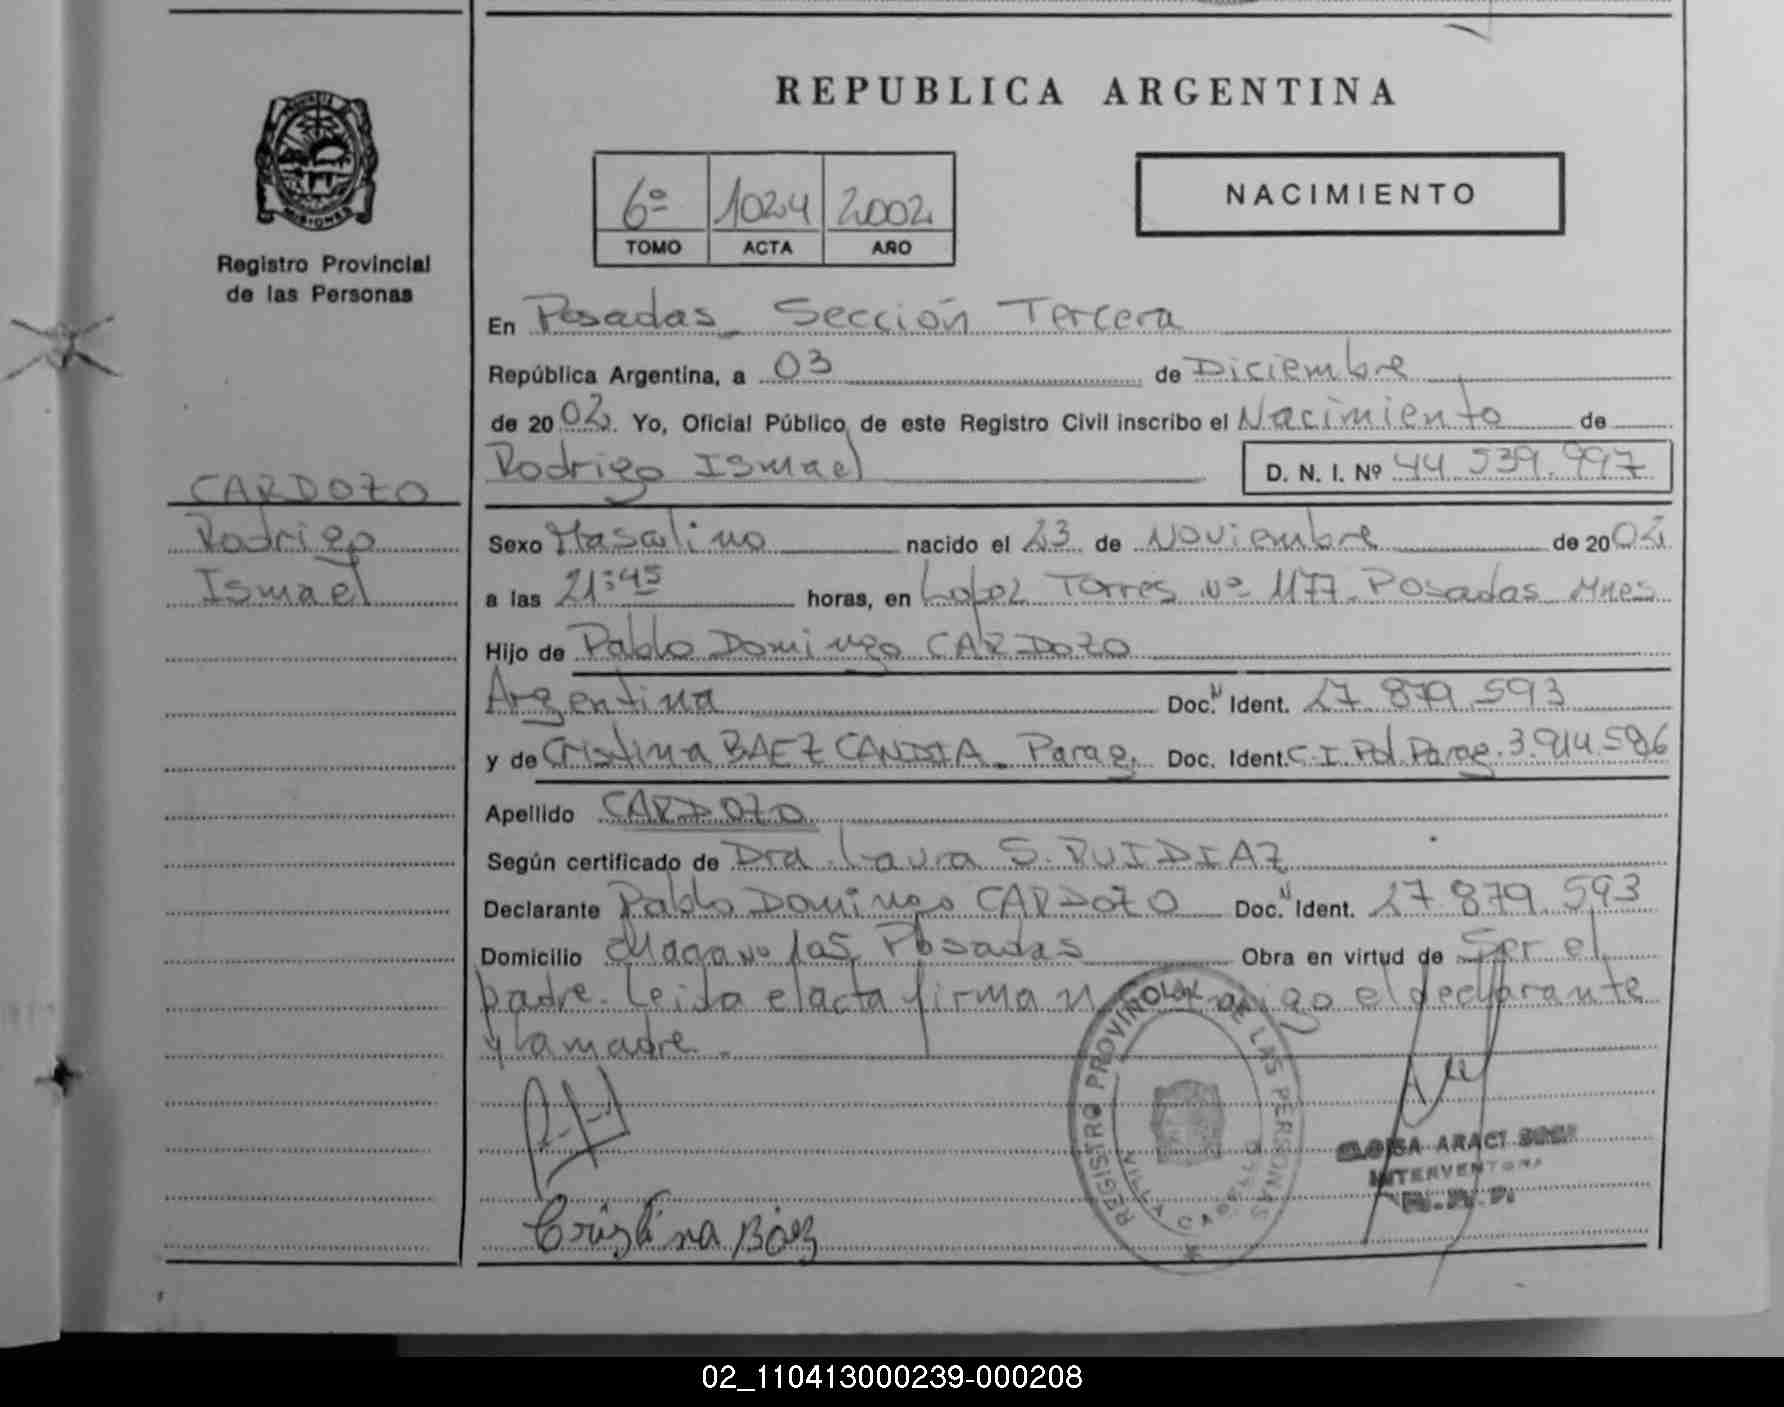 REPUBLICA ARGENTINA
MISIONES
Registro Provincial
de las Personas
6º 1024 2002
TOMO ACTA AÑO
NACIMIENTO
En Posadas Sección Tercera
República Argentina, a 03 de Diciembre
de 2002. Yo, Oficial Público de este Registro Civil inscribo el Nacimiento de
Rodrigo Ismael D. N. I. Nº 44.539.997
CARDOZO
Rodrigo
Ismael
Sexo Masculino nacido el 23 de Noviembre de 2002
a las 21:45 horas, en Lopez Torres Nº 1177 Posadas Mnes
Hijo de Pablo Domingo CARDOZO
Argentina Doc.N Ident. 17.879.593
y de Cristina BAEZ CANDIA Parag. Doc. Ident. C.I. Pol. Parag. 3.914.586
Apellido CARDOZO
Según certificado de Dra. Laura S. RUIDIAZ
Declarante Pablo Domingo CARDOZO Doc.N Ident. 17.879.593
Domicilio Posadas Obra en virtud de Ser el
padre. Leída el acta firman conmigo el declarante
y la madre.
REGISTRO PROVINCIAL DE LAS PERSONAS
VILLA CABELLO
ARACI
INTERVENTORA
R. P. P.
Cristina Báez
02_110413000239-000208